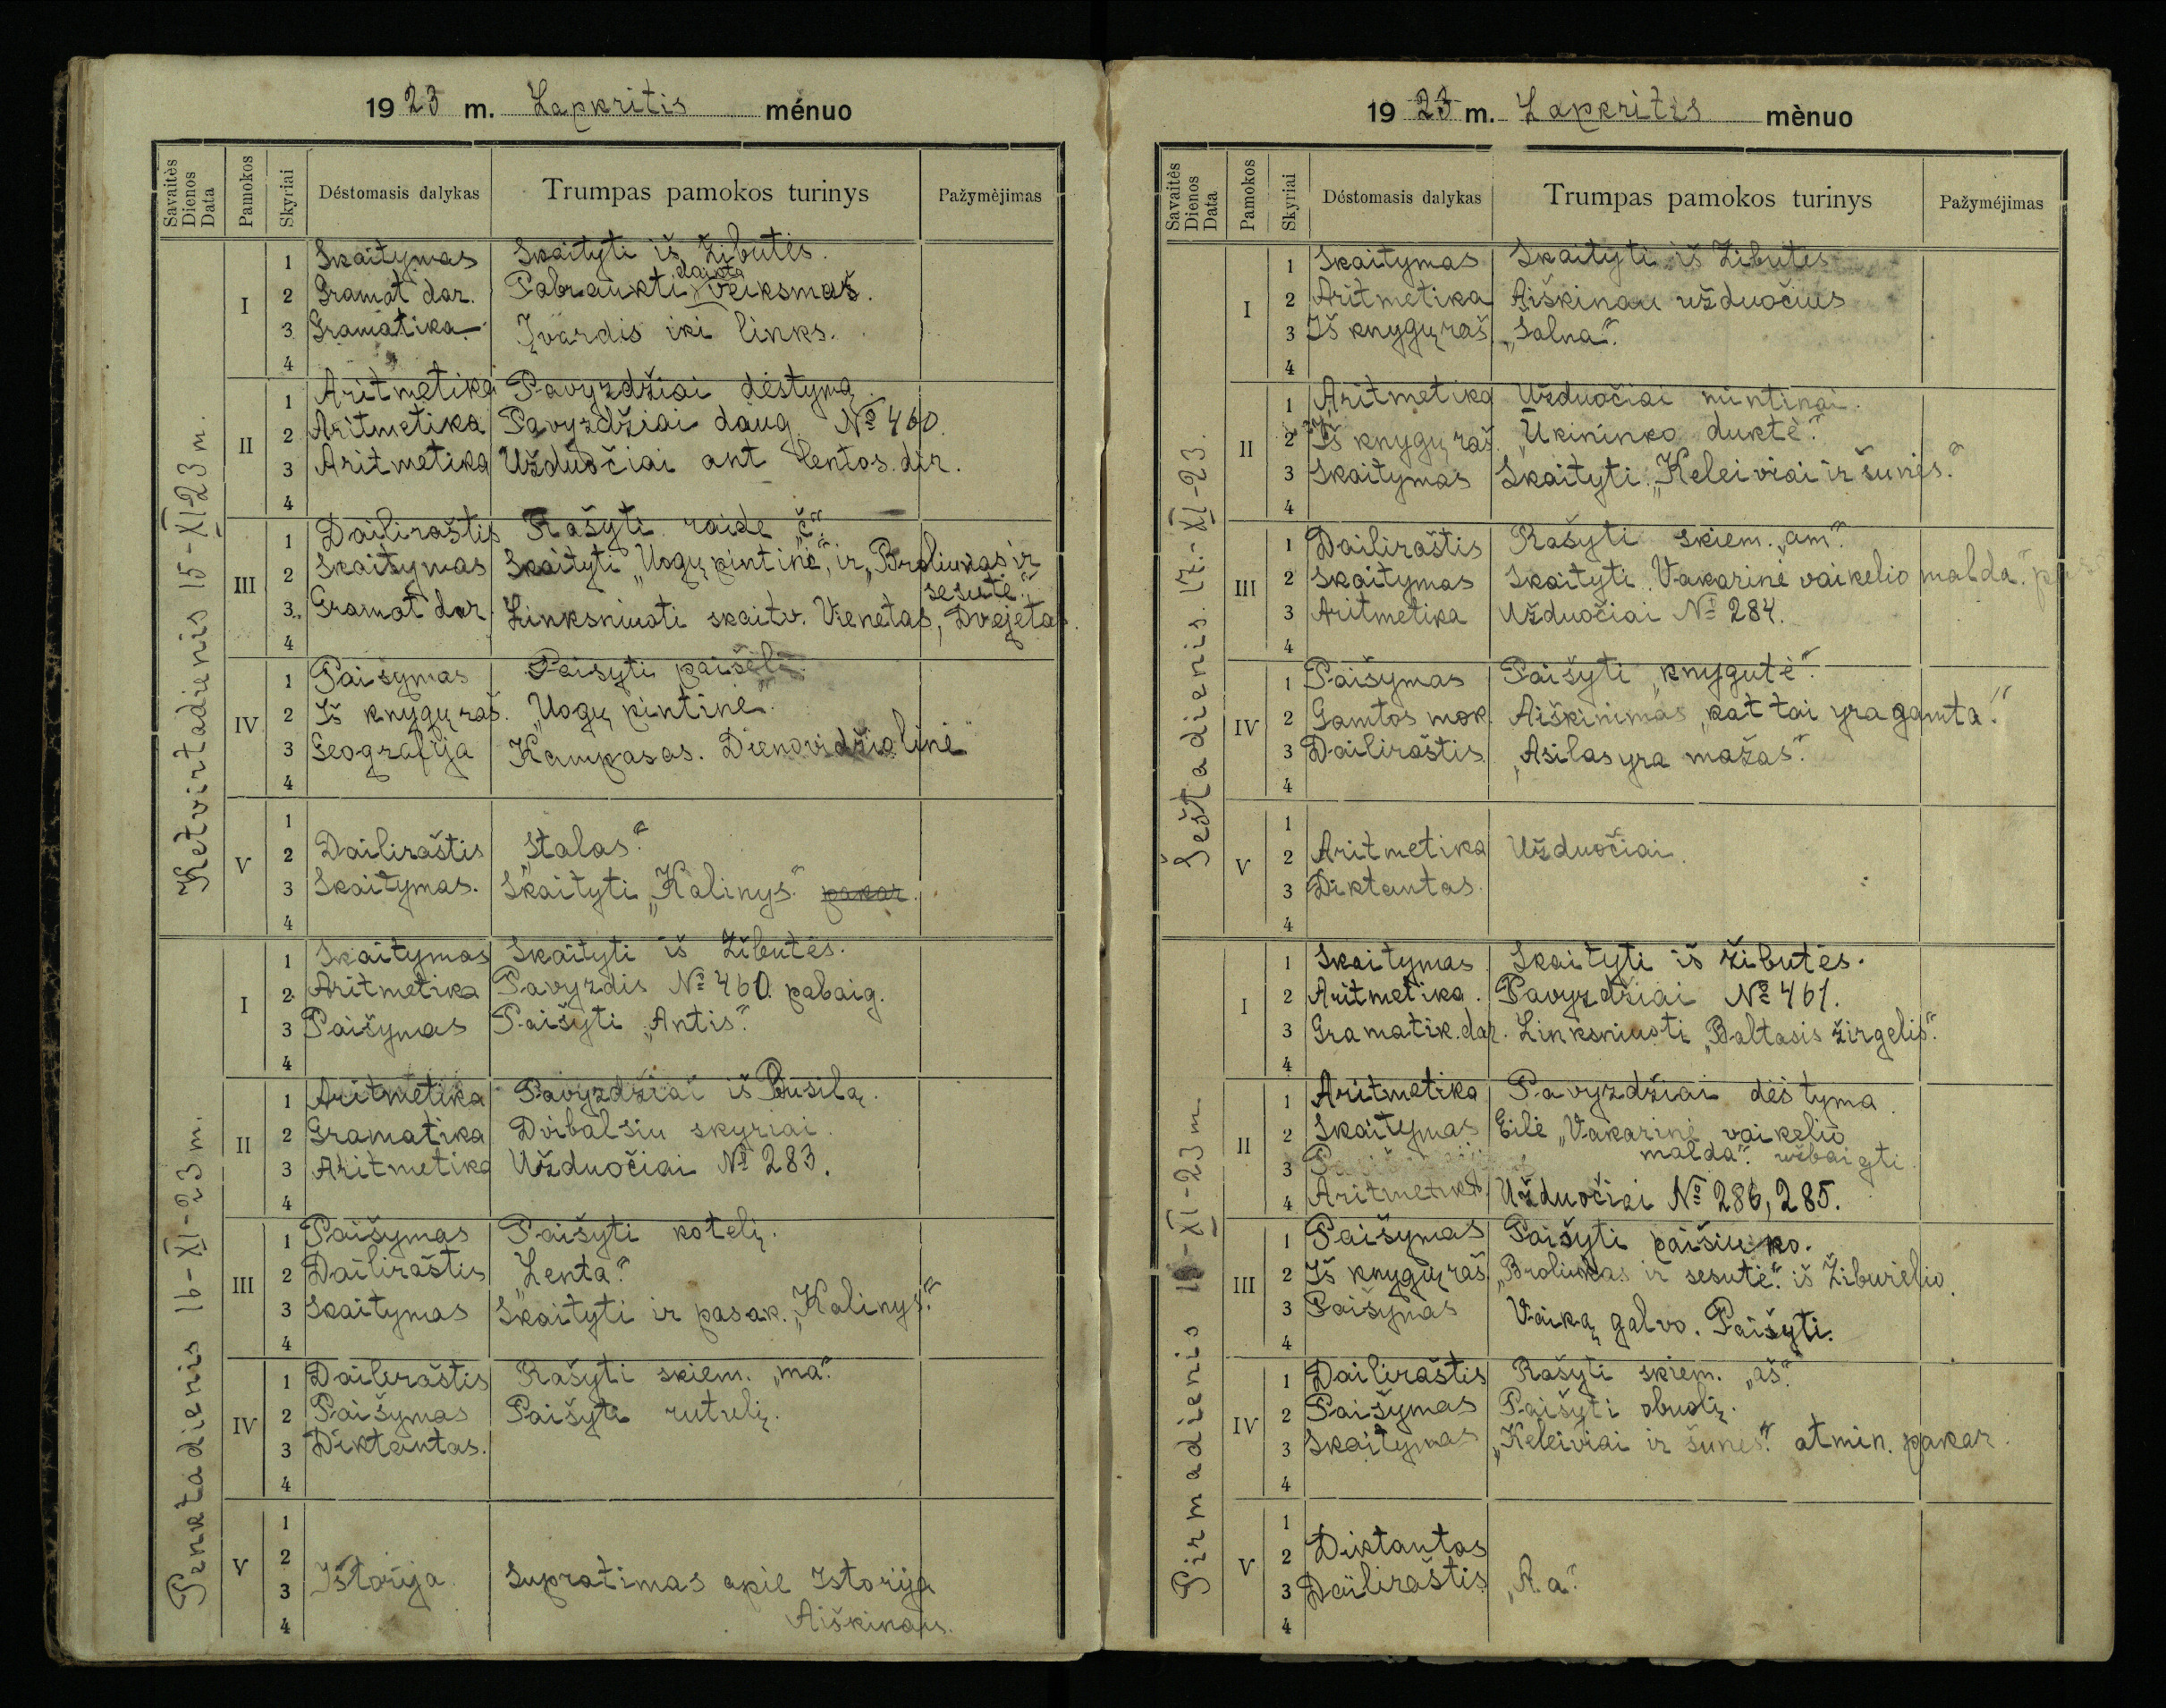 1923 m. Lapkritis ménuo
Savaitės Dienos Data
Pamokos
Skyriai
Déstomasis dalykas
Trumpas pamokos turinys
Pažyméjimas
Ketvirtadienis 15-XI-23 m.
I
1 Skaitymas Skaityti iš Žibutės.
daikta
2 Gramat dar. Pabraukti veiksmaš.
3 Gramatika Įvardis iki links.
4
II
1 Aritmetika Pavyzdžiai dėstymą.
2 Aritmetika Pavyzdžiai daug. № 460.
3 Aritmetika Užduočiai ant lentos. dir.
4
III
1 Dailiraštis Rašyti raide „č“.
2 Skaitymas Skaityti „Uogų pintinė“, ir „Broliukas ir
sesutė“.
3 Gramat dar Linksniuoti skaitv. Vienetas, Dvejetas.
4
IV
1 Paišymas Paišyti paišelį.
2 Iš knygų raš. „Uogų pintinė“.
3 Geografija Kampasas. Dienovidžio linė
4
V
1
2 Dailiraštis „Stalas“.
3 Skaitymas. Skaityti „Kalinys“. pakar.
4
Penktadienis 16-XI-23 m.
I
1 Skaitymas Skaityti iš Žibutės.
2 Aritmetika Pavyzdis № 460. pabaig.
3 Paišymas Paišyti „Antis“.
4
II
1 Aritmetika Pavyzdžiai iš Busilą.
2 Gramatika Dvibalsiu skyriai.
3 Aritmetika Užduočiai № 283.
4
III
1 Paišymas Paišyti kotelį.
2 Dailiraštis „Lenta“.
3 Skaitymas Skaityti ir pasak. „Kalinys“.
4
IV
1 Dailiraštis Rašyti skiem. „ma“.
2 Paišymas Paišyti rutulį.
3 Diktantas.
4
V
1
2
3 Istorija Supratimas apie Istorija
4 Aiškinau.
1923 m. Lapkritis mènuo
Savaitės Dienos Data
Pamokos
Skyriai
Déstomasis dalykas
Trumpas pamokos turinys
Pažyméjimas
Šeštadienis 17.-XI-23.
I
1 Skaitymas Skaityti iš Žibutės
2 Aritmetika Aiškinau užduočius
3 Iš knygų raš „Šalna“.
4
II
1 Aritmetika Užduočiai mintinai.
2 Iš knygų raš. „Ūkininko duktė“.
3 Skaitymas Skaityti „Keleiviai ir šunės“.
4
III
1 Dailiraštis Rašyti skiem. „am“.
2 Skaitymas Skaityti „Vakarinė vaikelio malda“.
3 Aritmetika Užduočiai № 284.
4
IV
1 Paišymas Paišyti „knygutė“.
2 Gamtos mok. Aiškinimas „kat tai yra gamta“.
3 Dailiraštis „Asilas yra mažas“.
4
V
1
2 Aritmetika Užduočiai.
3 Diktantas.
4
Pirmadienis -XI-23 m.
I
1 Skaitymas Skaityti iš Žibutės.
2 Aritmetika. Pavyzdžiai № 461.
3 Gramatik. dar. Linksniuoti „Baltasis žirgelis“.
4
II
1 Aritmetika Pavyzdžiai dėstyma.
2 Skaitymas Eilė „Vakarinė vaikelio
3 malda“. užbaigti.
4 Aritmetika. Užduočiai № 286, 285.
III
1 Paišymas Paišyti paišiuko.
2 Iš knygų raš. „Broliukas ir sesutė“. iš Žiburėlio.
3 Paišymas Vaiką galvo. Paišyti.
4
IV
1 Dailiraštis Rašyti skiem. „aš“.
2 Paišymas Paišyti obuolį.
3 Skaitymas „Keleiviai ir šunės“. atmin. pakar.
4
V
1
2 Diktantas
3 Dailiraštis „R.a“.
4